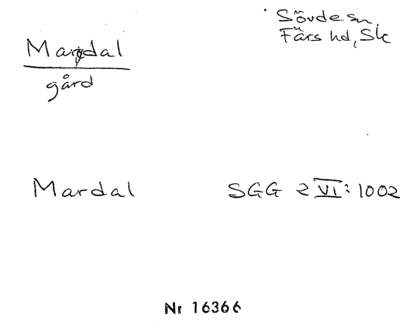 Mardal
gård
Sövde sn,
Färs hd, Sk
Mardal SGG 2 VI: 1002
Nr 16366